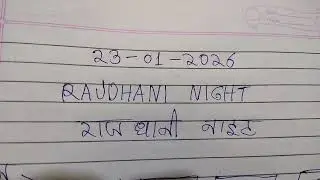 23-01-2026
RAJDHANI NIGHT
राज धानी नाइट